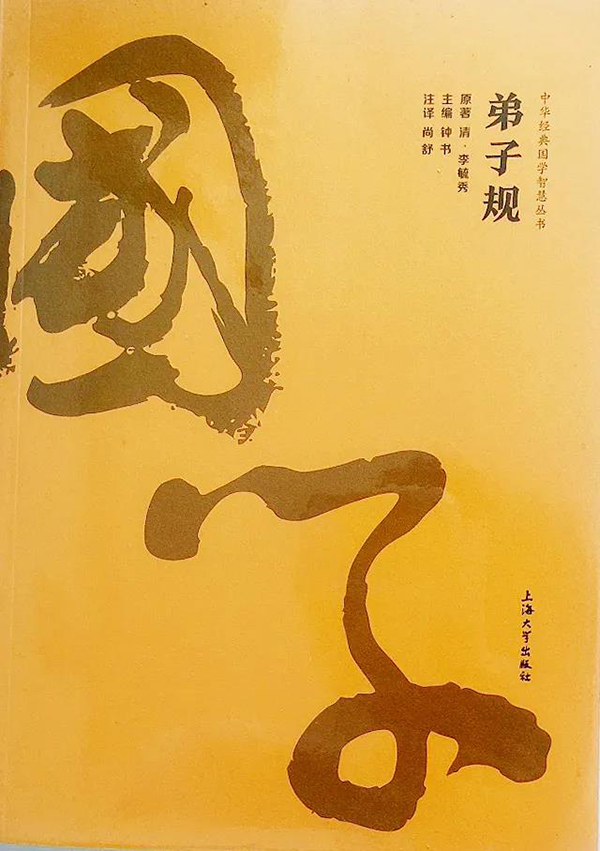 中华经典国学智慧丛书
弟子规
原著 清·李毓秀
主编 钟书
注译 尚舒
國学
上海大学出版社